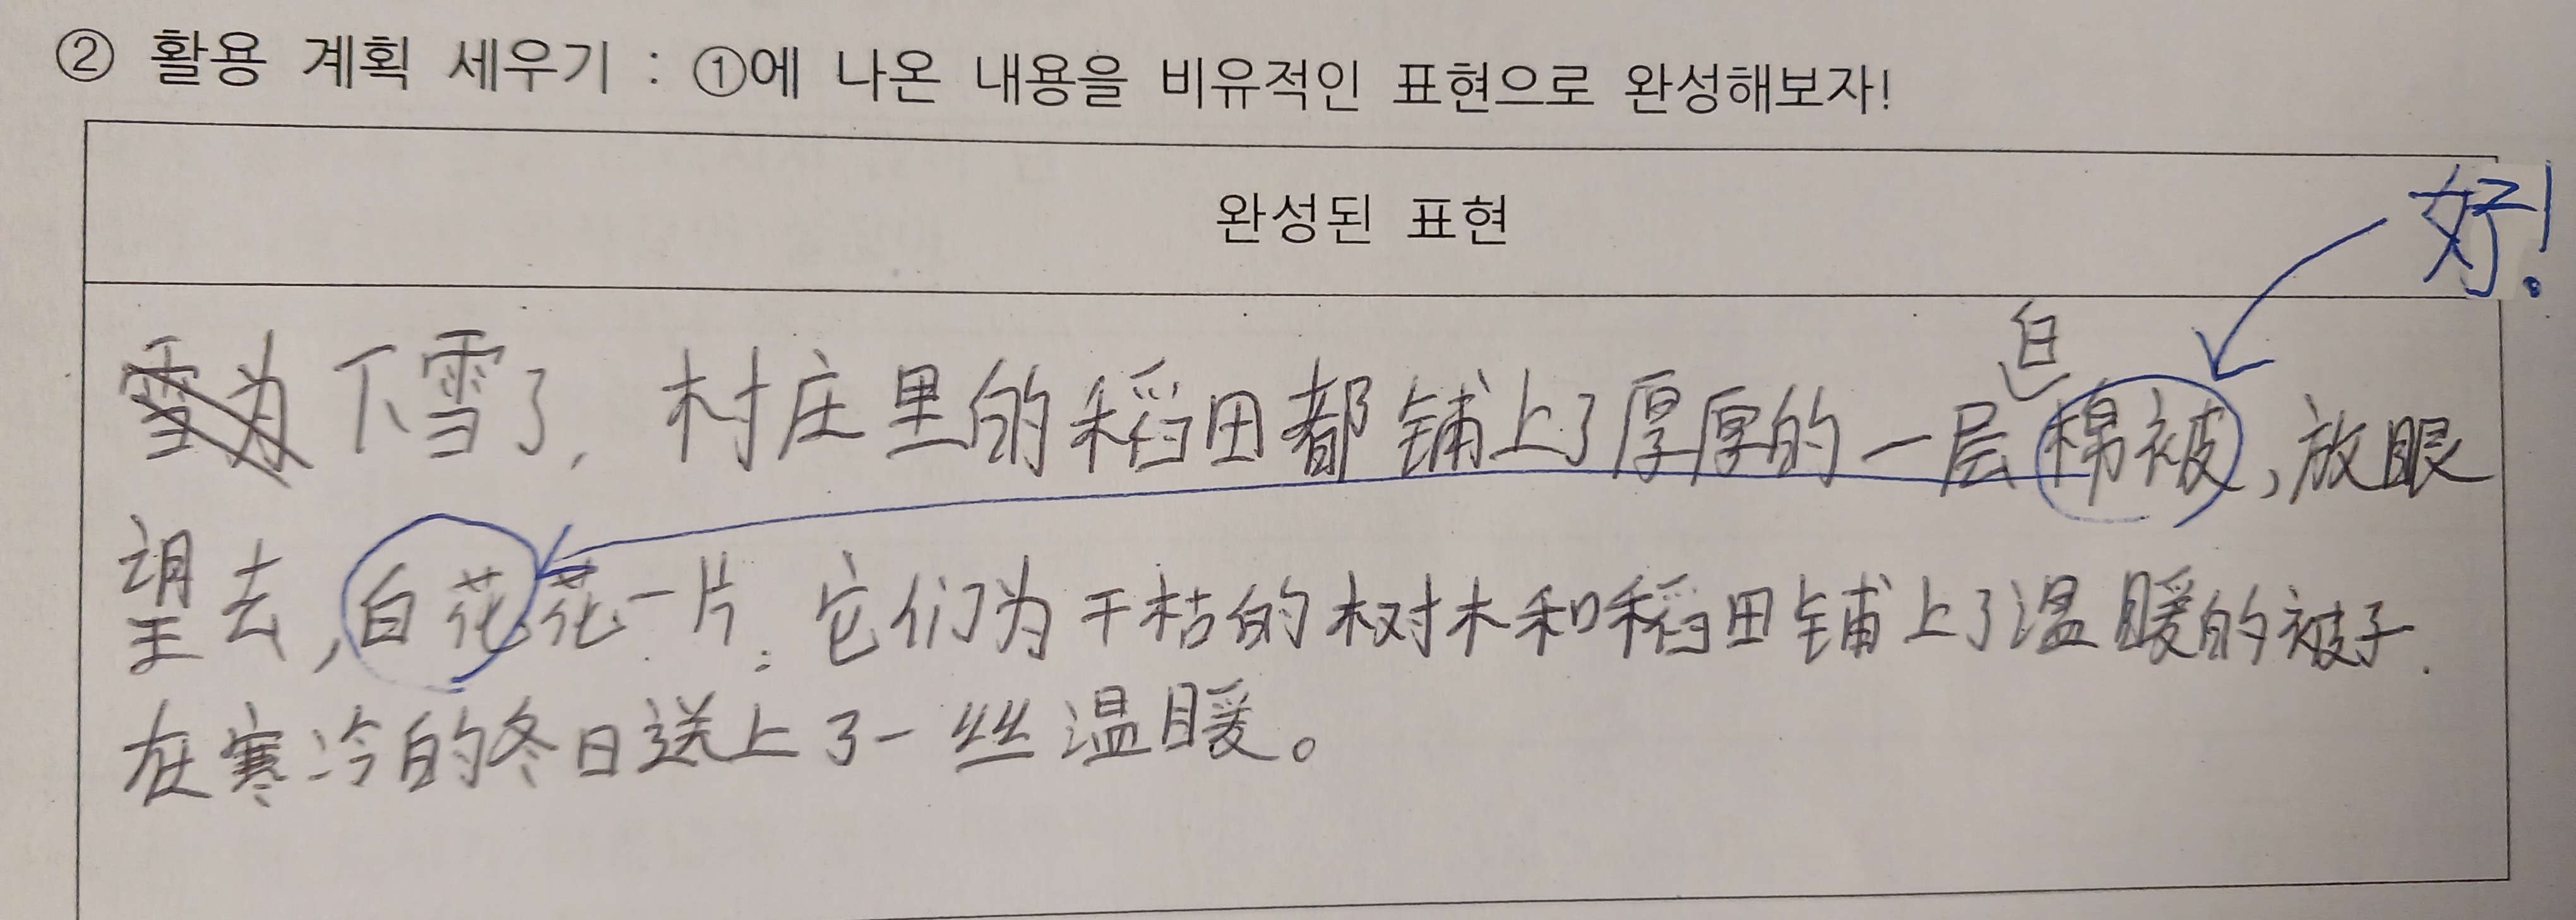 ② 활용 계획 세우기 : ①에 나온 내용을 비유적인 표현으로 완성해보자!
완성된 표현
好!
白
雪为 下雪了, 村庄里的稻田都铺上了厚厚的一层棉被, 放眼
望去, 白花花一片. 它们为干枯的树木和稻田铺上了温暖的被子.
在寒冷的冬日送上了一丝温暖。